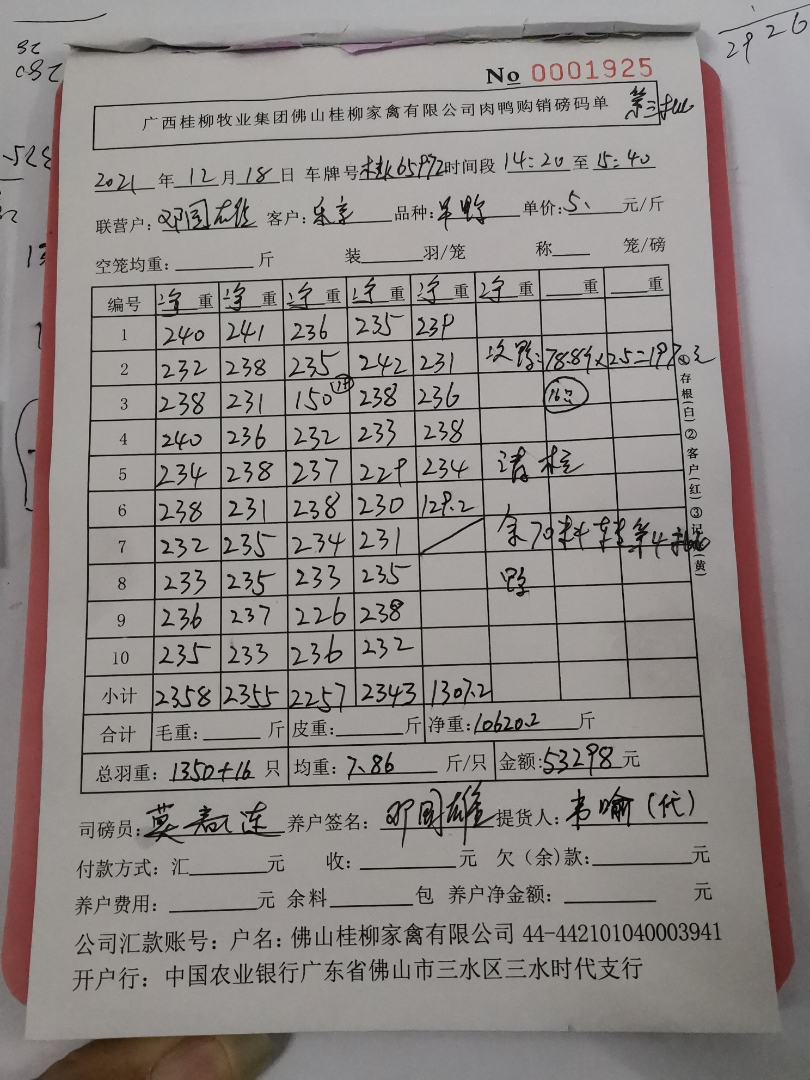 2926
No 0001925
广西桂柳牧业集团佛山桂柳家禽有限公司肉鸭购销磅码单 第三批
2021 年 12 月 18 日 车牌号 65992 时间段 14:20 至 15:40
联营户: 邓国雄 客户: 品种: 单价: 5. 元/斤
空笼均重: 斤 装 羽/笼 称 笼/磅
编号 净重 净重 净重 净重 净重 净重 重 重
1 240 241 236 235 239
2 232 238 235 242 231 次鸭: 78.8斤×2.5=197元
3 238 231 150 238 236 16只
4 240 236 232 233 238
5 234 238 237 229 234
6 238 231 238 230 129.2
7 232 235 234 231 余70 料转第4批
8 233 235 233 235 鸭
9 236 237 226 238
10 235 233 236 232
小计 2358 2355 2257 2343 1307.2
合计 毛重: 斤 皮重: 斤 净重: 10620.2 斤
总羽重: 1350+16 只 均重: 7.86 斤/只 金额: 53298 元
①存根(白)②客户(红)③记(黄)
司磅员: 莫 连 养户签名: 邓国雄 提货人: 韦喻(代)
付款方式: 汇 元 收: 元 欠(余)款: 元
养户费用: 元 余料 包 养户净金额: 元
公司汇款账号: 户名: 佛山桂柳家禽有限公司 44-442101040003941
开户行: 中国农业银行广东省佛山市三水区三水时代支行